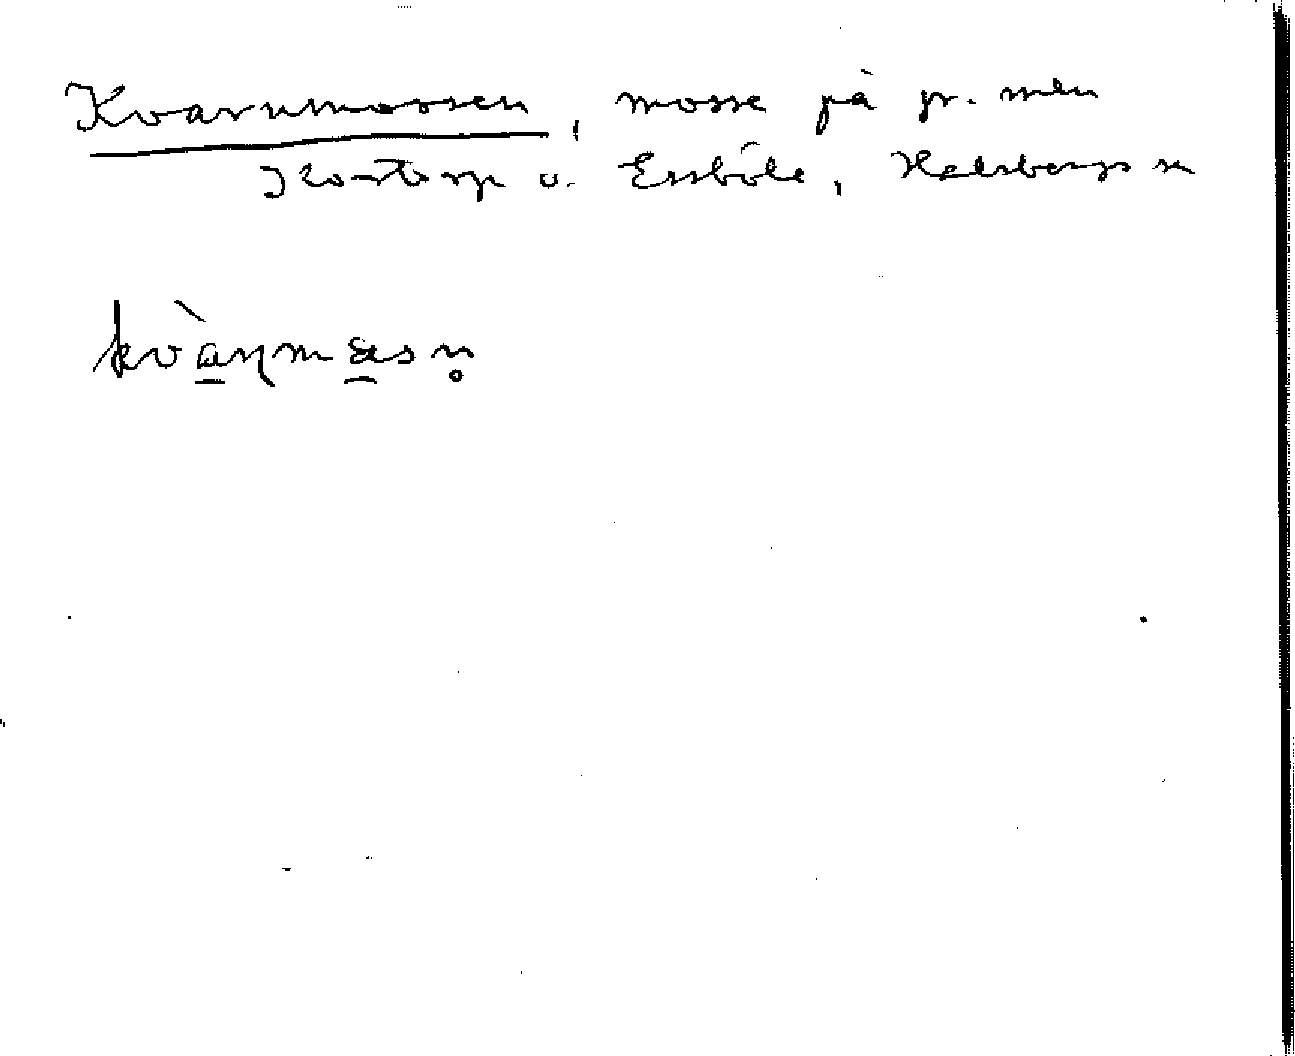 Kvarnmossen, mosse på gr. mln
Kostorp o. Essböle, Halsbergs sn
kvàɳmasn̥